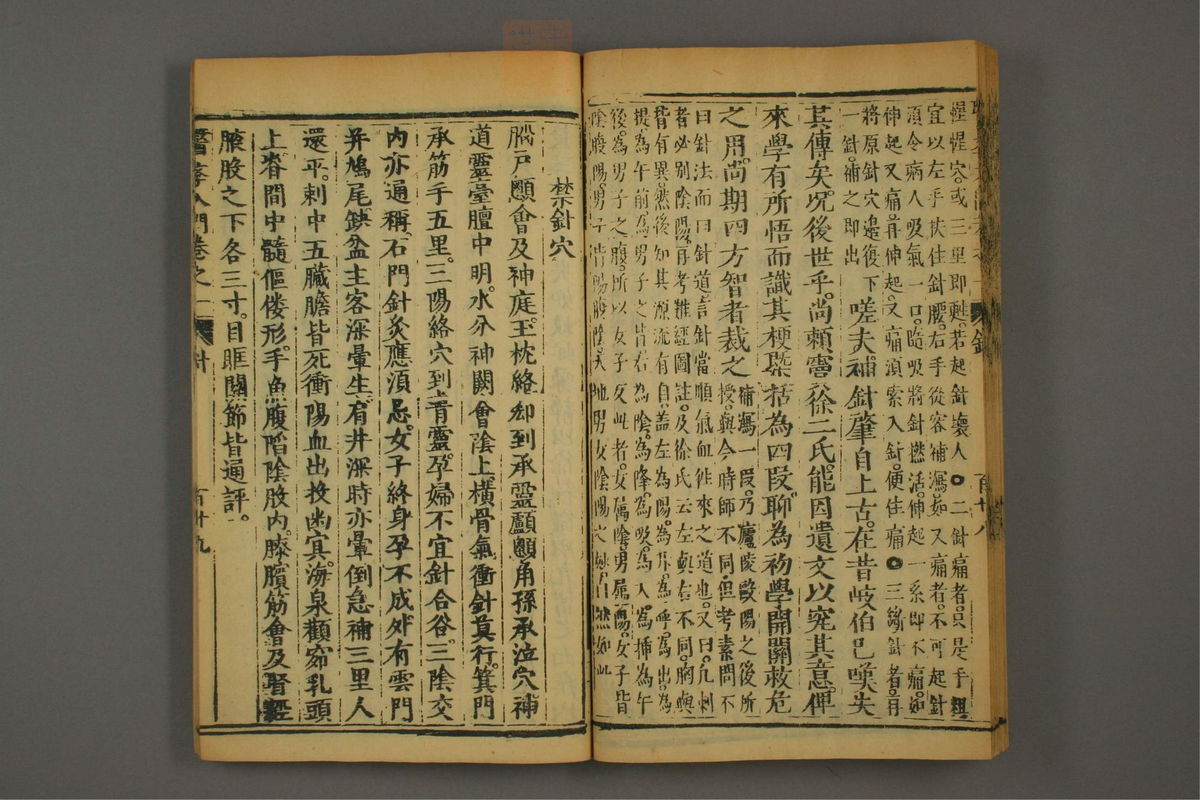 惺惺穴或三里即甦。若起針壞人○二針痛者。只是手粗
宜以左手扶住針腰。右手從容補瀉。如又痛者。不可起針
須令病人吸氣一口。隨吸將針撚活。伸起一糸即不痛。如
伸起又痛。再伸起。又痛。須索入針。便住痛○三斷針者。再
將原針穴邊復下
一針。補之即出
嗟夫。補針肇自上古。在昔岐伯已嘆失
其傳矣。況後世乎。尚賴竇徐二氏。能因遺文以究其意。俾
來學有所悟而識其梗槩括為四段。聊為初學開關救危
之用。尚期四方智者裁之
補瀉一段。乃廬陵歐陽之後所
授。與今時師不同。但考素問不
曰針法而曰針道。言針當順氣血徃來之道也。又曰。凡刺
者必別陰陽。再考難經圖註。及徐氏云左與右不同。胸與
背有異。然後知其源流有自。盖左為陽。為升。為呼。為出。為
提。為午前。為男子之背。右為陰。為降。為吸。為入。為揷。為午
後。為男子之腹。所以女子反此者。女屬陰。男屬陽。女子背
陰腹陽。男子背陽腹陰。天地男女陰陽之妙自然如此
禁針穴
腦戶顖會及神庭。玉枕絡却到承靈。顱顖角孫承泣穴。神
道靈臺膻中明。水分神闕會陰上。橫骨氣衝針莫行。箕門
承筋手五里。三陽絡穴到青靈。孕婦不宜針合谷。三陰交
內亦通稱。石門針灸應須忌。女子終身孕不成。外有雲門
并鳩尾。缺盆主客深暈生。肩井深時亦暈倒。急補三里人
還平。刺中五臟膽皆死。衝陽血出投幽冥。海泉顴窌乳頭
上。脊間中髓傴僂形。手魚腹陷陰股內。膝臏筋會及腎經
腋股之下各三寸。目眶關節皆通評。
醫學入門卷之一 針 百十九